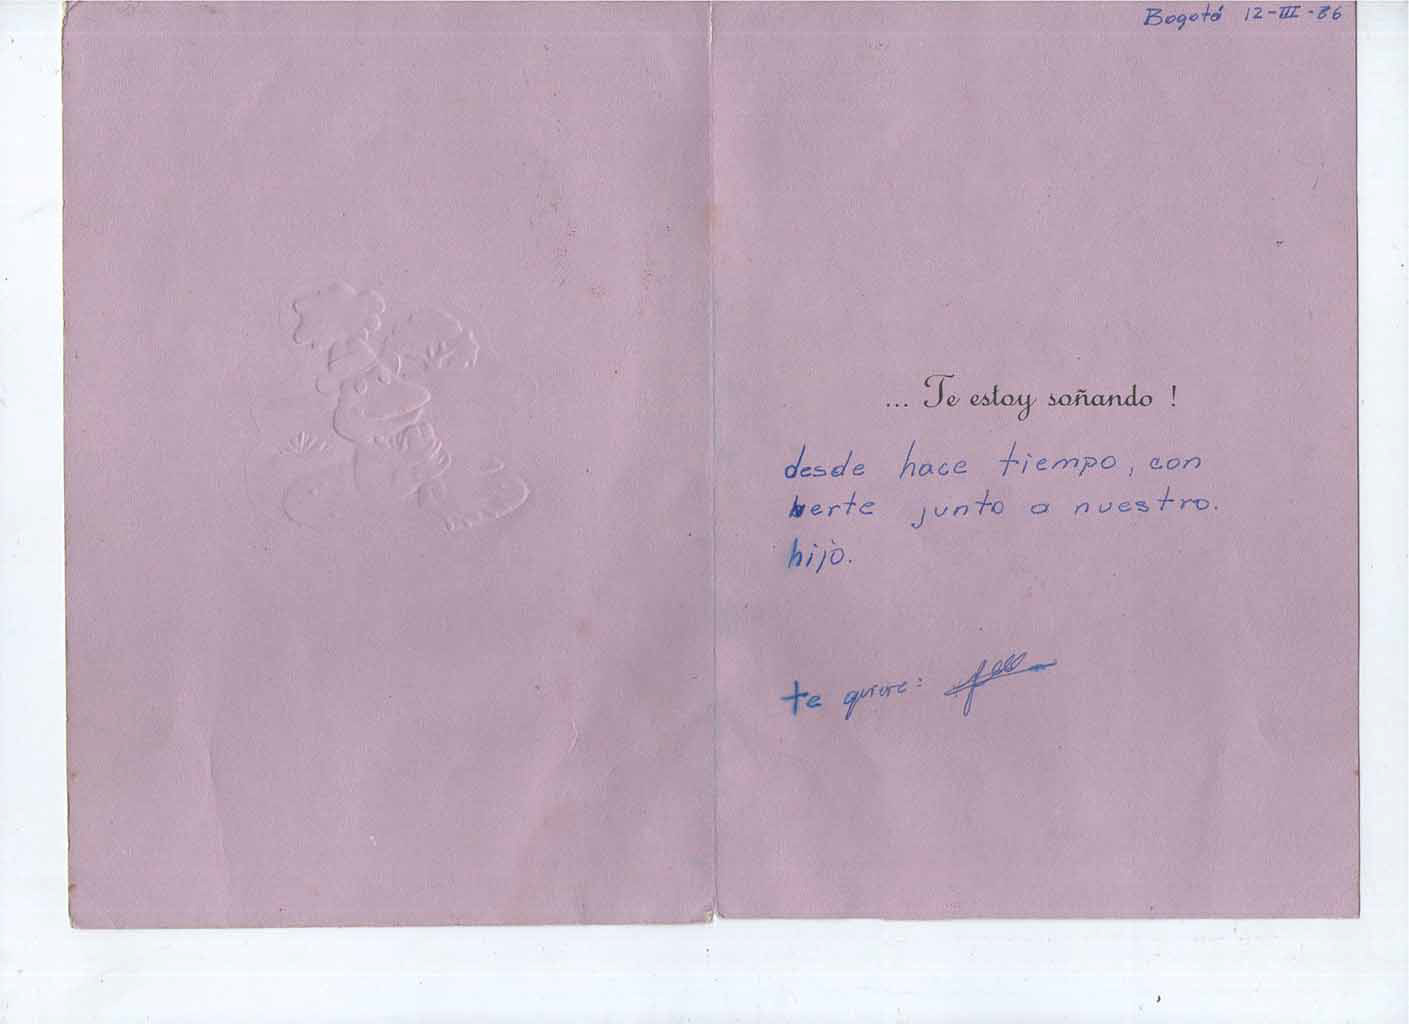 Bogotá 12-III-86
... Te estoy soñando !
desde hace tiempo, con
verte junto a nuestro.
hijo.
te quiere: